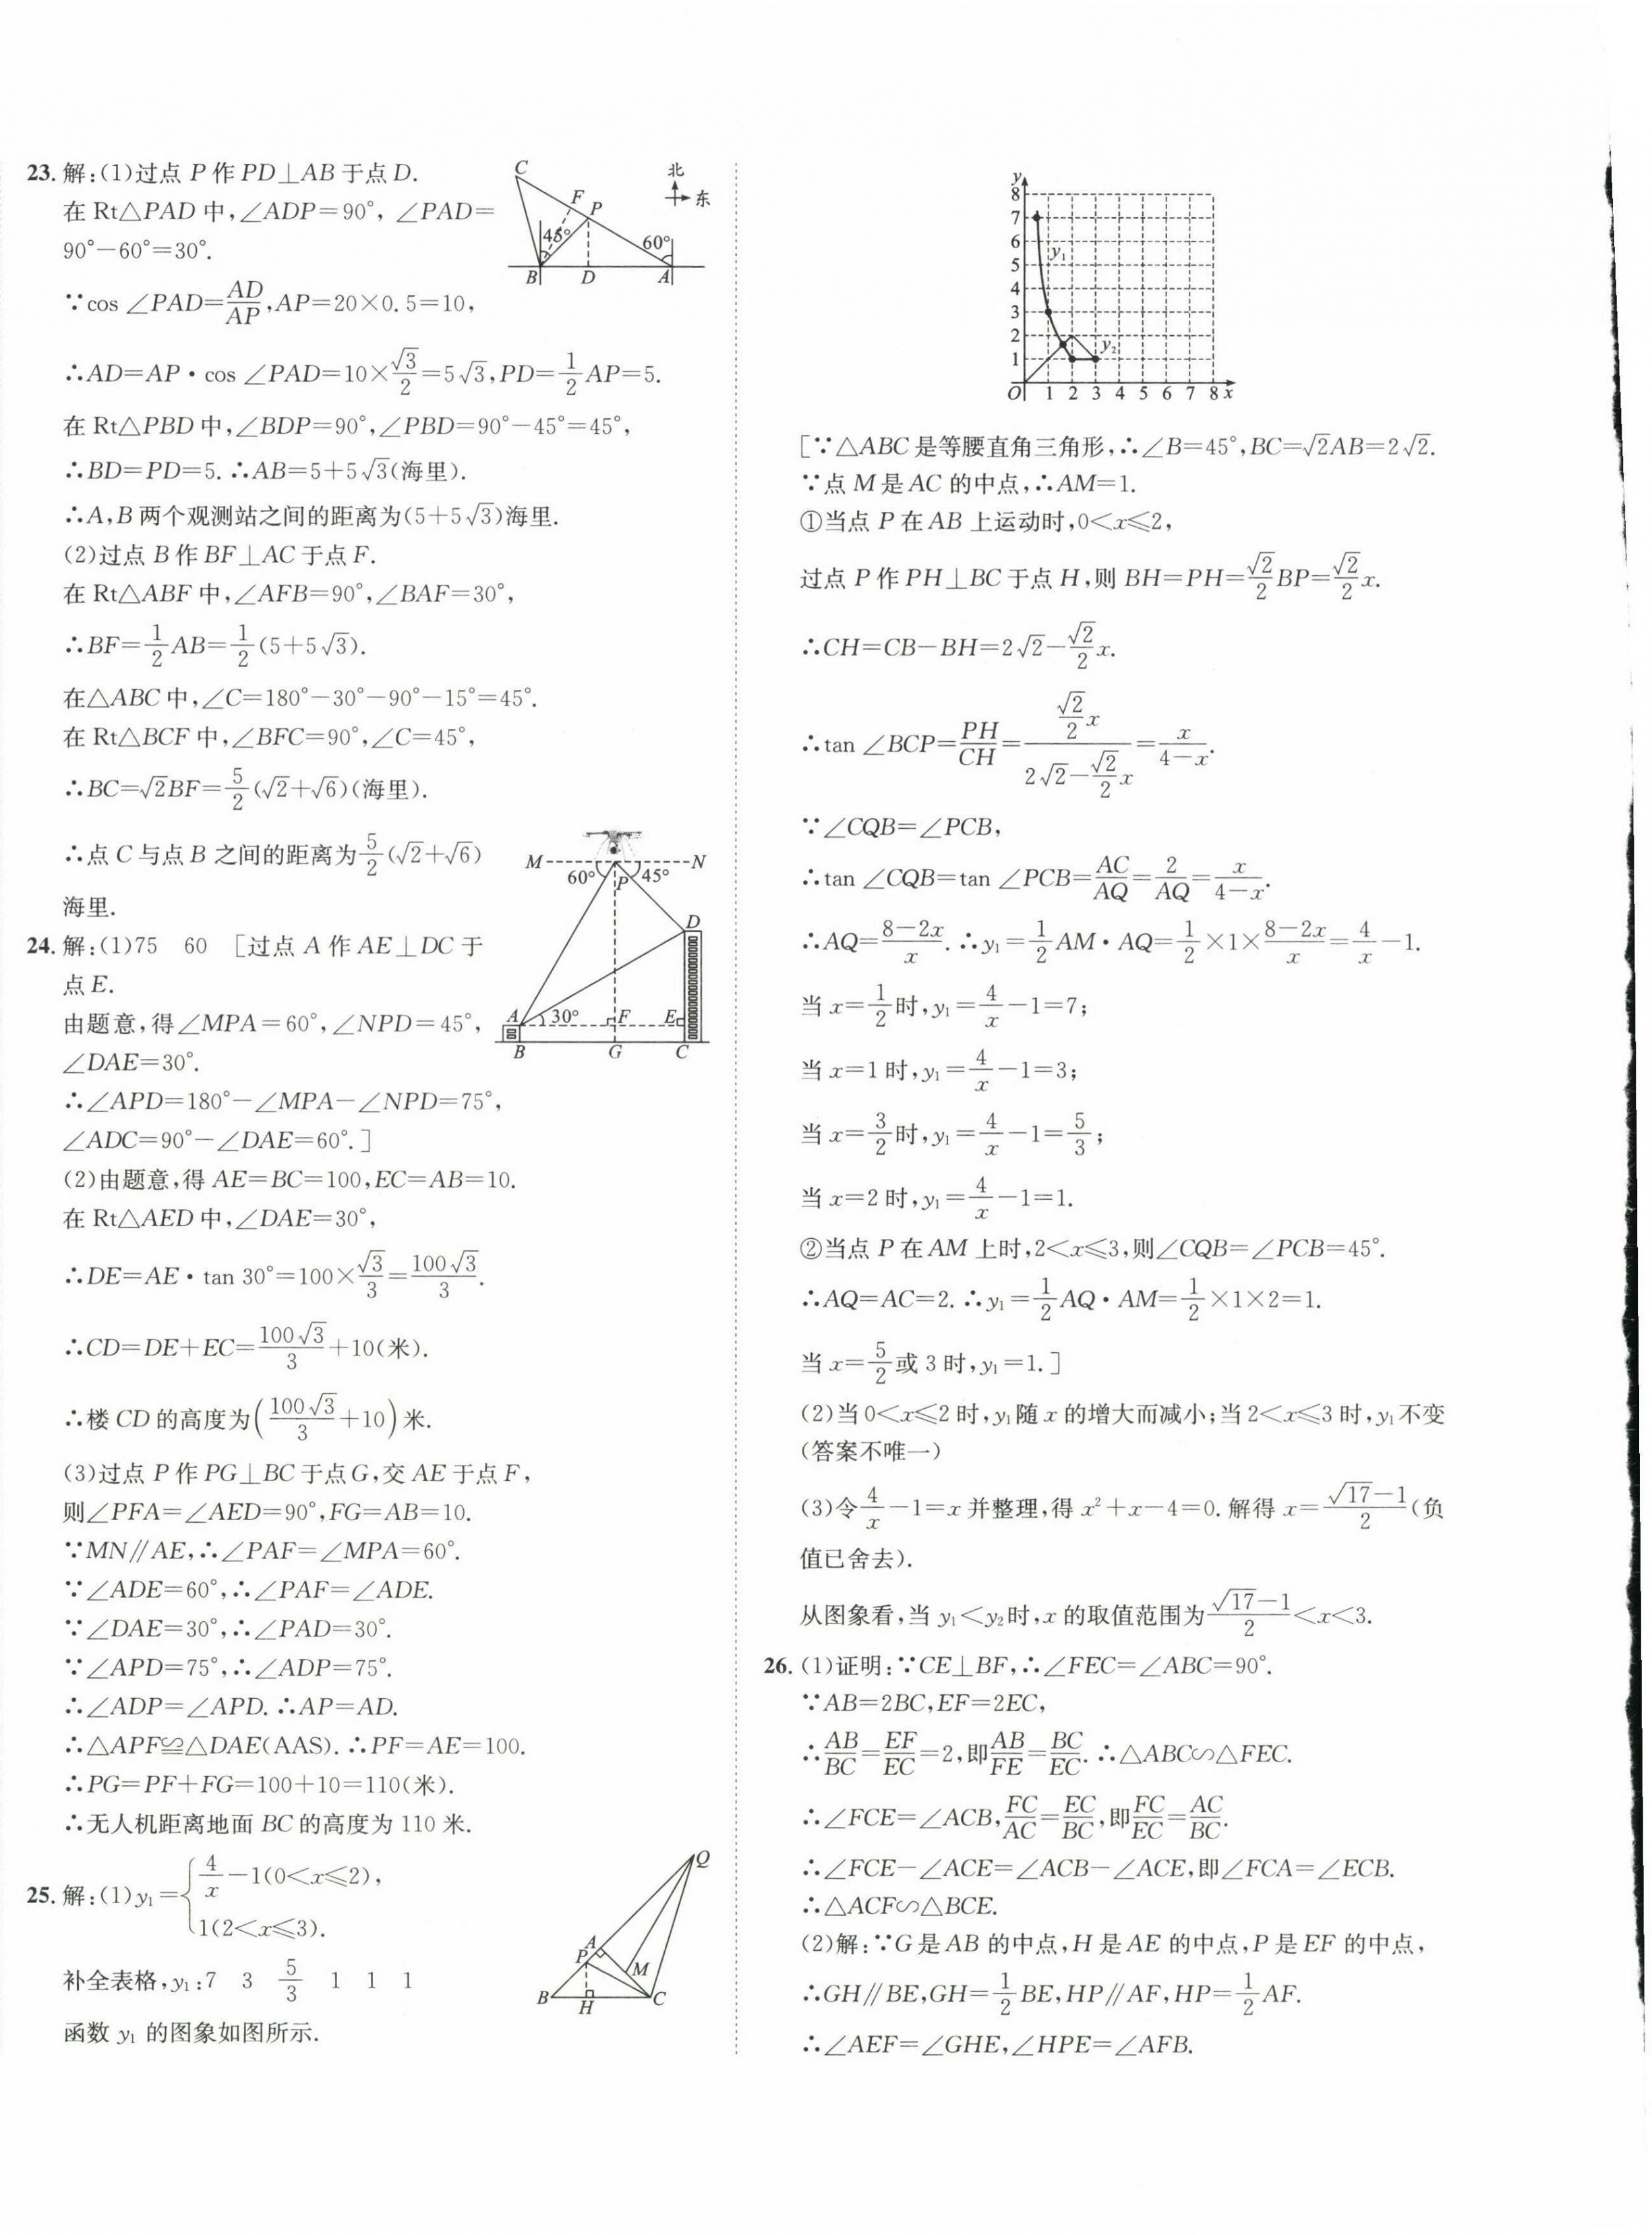 23. 解:(1)过点 P 作 PD⊥AB 于点 D.
在 Rt△PAD 中,∠ADP=90°, ∠PAD=
90°-60°=30°.
∵cos ∠PAD=AD/AP,AP=20×0.5=10,
∴AD=AP·cos ∠PAD=10×√3/2=5√3,PD=1/2 AP=5.
在 Rt△PBD 中,∠BDP=90°,∠PBD=90°-45°=45°,
∴BD=PD=5.∴AB=5+5√3(海里).
∴A,B 两个观测站之间的距离为(5+5√3)海里.
(2)过点 B 作 BF⊥AC 于点 F.
在 Rt△ABF 中,∠AFB=90°,∠BAF=30°,
∴BF=1/2 AB=1/2(5+5√3).
在△ABC 中,∠C=180°-30°-90°-15°=45°.
在 Rt△BCF 中,∠BFC=90°,∠C=45°,
∴BC=√2BF=5/2(√2+√6)(海里).
∴点 C 与点 B 之间的距离为5/2(√2+√6)
海里.
C F P 北 东 45° 60° B D A
24. 解:(1)75 60 [过点 A 作 AE⊥DC 于
点 E.
由题意,得∠MPA=60°,∠NPD=45°,
∠DAE=30°.
∴∠APD=180°-∠MPA-∠NPD=75°,
∠ADC=90°-∠DAE=60°.]
(2)由题意,得 AE=BC=100,EC=AB=10.
在 Rt△AED 中,∠DAE=30°,
∴DE=AE·tan 30°=100×√3/3=100√3/3.
∴CD=DE+EC=100√3/3+10(米).
∴楼 CD 的高度为(100√3/3+10)米.
(3)过点 P 作 PG⊥BC 于点 G,交 AE 于点 F,
则∠PFA=∠AED=90°,FG=AB=10.
∵MN∥AE,∴∠PAF=∠MPA=60°.
∵∠ADE=60°,∴∠PAF=∠ADE.
∵∠DAE=30°,∴∠PAD=30°.
∵∠APD=75°,∴∠ADP=75°.
∴∠ADP=∠APD.∴AP=AD.
∴△APF≌△DAE(AAS).∴PF=AE=100.
∴PG=PF+FG=100+10=110(米).
∴无人机距离地面 BC 的高度为 110 米.
M N 60° P 45° D A 30° F E B G C
25. 解:(1)y₁={4/x-1(0<x≤2),
1(2<x≤3).
补全表格,y₁:7 3 5/3 1 1 1
函数 y₁ 的图象如图所示.
Q A P M B H C
y 8 7 6 5 4 3 2 1 y₁ y₂
O 1 2 3 4 5 6 7 8 x
[∵△ABC 是等腰直角三角形,∴∠B=45°,BC=√2AB=2√2.
∵点 M 是 AC 的中点,∴AM=1.
①当点 P 在 AB 上运动时,0<x≤2,
过点 P 作 PH⊥BC 于点 H,则 BH=PH=√2/2 BP=√2/2 x.
∴CH=CB-BH=2√2-√2/2 x.
∴tan ∠BCP=PH/CH=(√2/2 x)/(2√2-√2/2 x)=x/(4-x).
∵∠CQB=∠PCB,
∴tan ∠CQB=tan ∠PCB=AC/AQ=2/AQ=x/(4-x).
∴AQ=(8-2x)/x.∴y₁=1/2 AM·AQ=1/2×1×(8-2x)/x=4/x-1.
当 x=1/2时,y₁=4/x-1=7;
当 x=1 时,y₁=4/x-1=3;
当 x=3/2时,y₁=4/x-1=5/3;
当 x=2 时,y₁=4/x-1=1.
②当点 P 在 AM 上时,2<x≤3,则∠CQB=∠PCB=45°.
∴AQ=AC=2.∴y₁=1/2 AQ·AM=1/2×1×2=1.
当 x=5/2或 3 时,y₁=1.]
(2)当 0<x≤2 时,y₁随 x 的增大而减小;当 2<x≤3 时,y₁不变
(答案不唯一)
(3)令4/x-1=x 并整理,得 x²+x-4=0.解得 x=(√17-1)/2(负
值已舍去).
从图象看,当 y₁<y₂时,x 的取值范围为(√17-1)/2<x<3.
26. (1)证明:∵CE⊥BF,∴∠FEC=∠ABC=90°.
∵AB=2BC,EF=2EC,
∴AB/BC=EF/EC=2,即AB/FE=BC/EC.∴△ABC∽△FEC.
∴∠FCE=∠ACB,FC/AC=EC/BC,即FC/EC=AC/BC.
∴∠FCE-∠ACE=∠ACB-∠ACE,即∠FCA=∠ECB.
∴△ACF∽△BCE.
(2)解:∵G 是 AB 的中点,H 是 AE 的中点,P 是 EF 的中点,
∴GH∥BE,GH=1/2 BE,HP∥AF,HP=1/2 AF.
∴∠AEF=∠GHE,∠HPE=∠AFB.